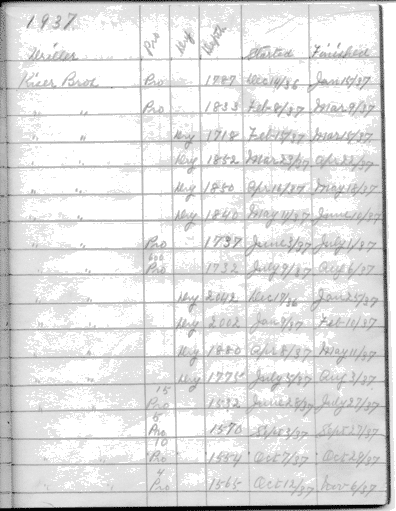 1937
Driller Pro Dry Depth Started Finished
Kizer Bros Pro 1787 Dec 14/36 Jan 15/37
" " Pro 1833 Feb 8/37 Mar 9/37
" " Dry 1718 Feb 15/37 Mar 15/37
" " Dry 1852 Mar 29/37 Apr 22/37
" " Dry 1850 Apr 16/37 May 15/37
" " Dry 1840 May 19/37 June 16/37
" " Pro 1737 June 3/37 July 1/37
600
" " Pro 1732 July 9/37 Aug 6/37
" " Dry 2042 Dec 17/36 Jan 25/37
" " Dry 2002 Jan 9/37 Feb 10/37
" " Dry 1880 Apr 8/37 May 11/37
" " Dry 1775 July 5/37 Aug 3/37
15
" " Pro 1532 June 28/37 July 27/37
5
" " Pro 1570 Sept 3/37 Sept 27/37
10
" " Pro 1554 Oct 7/37 Oct 29/37
4
" " Pro 1565 Oct 12/37 Nov 6/37